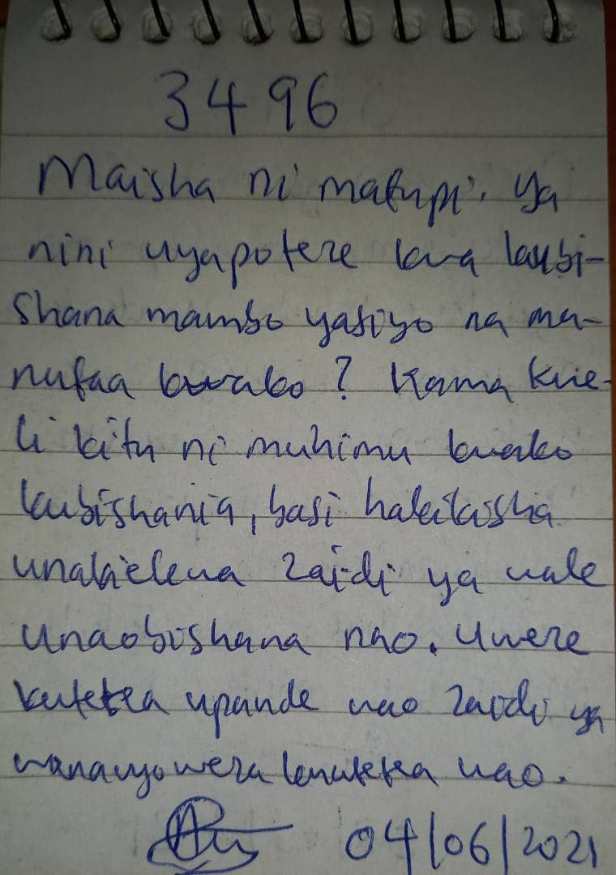 3496
Maisha ni mafupi. Ya
nini uyapoteze kwa kubi-
shana mambo yasiyo na ma-
nufaa kwako? Kama kwe-
li kitu ni muhimu kwako
kubishania, basi hakikisha
unakielewa zaidi ya wale
unaobishana nao. Uweze
kutetea upande wao zaidi ya
wanavyoweza kuutetea wao.
04/06/2021